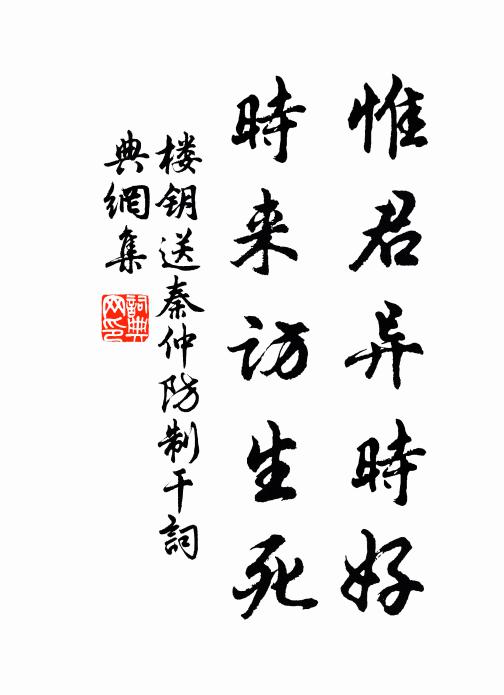 惟君异時好
時来访生死
楼钥送秦仲防制干詞
典網集
詞典网印